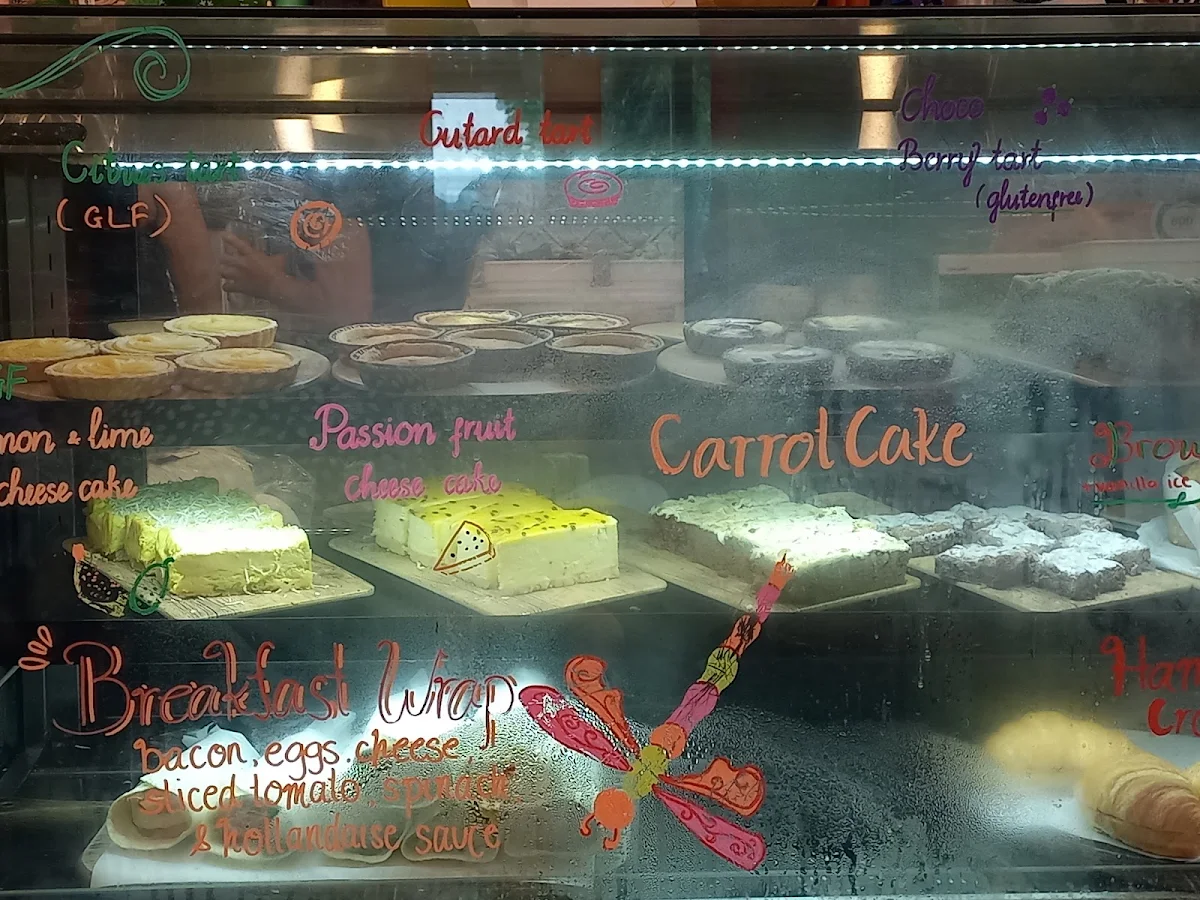 Citrus tart
(GLF)
Cutard tart
Choco
Berry tart
(glutenfree)
GF
mon & lime
cheese cake
Passion fruit
cheese cake
Carrot Cake
Brow
+ vanilla ice
Breakfast Wrap
bacon, eggs, cheese,
sliced tomato, spinach
& hollandaise sauce
Ham
Cr